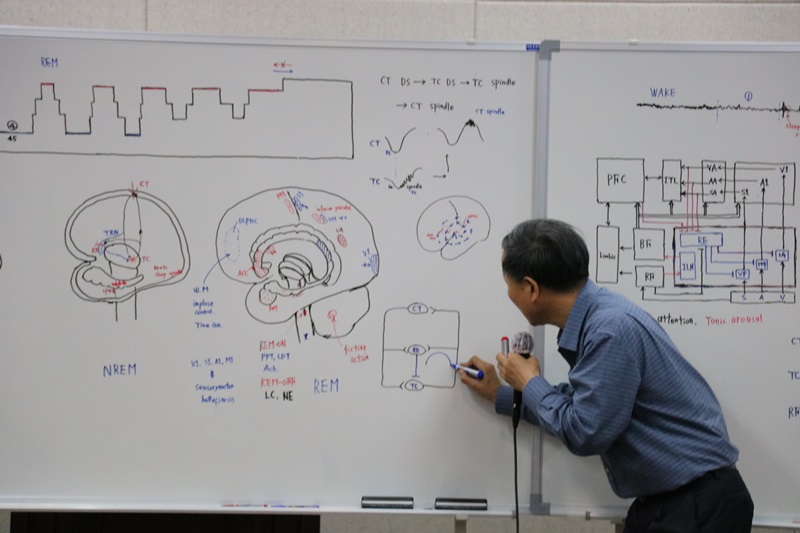 REM
45
CT DS → TC DS → TC spindle
→ CT spindle
CT spindle
CT
TC
spindle
CT
TRN
TC
NREM
DLPFC
W.M.
Time
M1
ACC
AM
V1
V1, S1, A1, M1
REM-ON
PPT, LDT
Ach
REM-OFF
LC, NE
REM
fictive
action
CT
RE
TC
WAKE
①
PFC
ITL
VA
AA
SA
V1
A1
S1
limbic
BF
RF
RE
ILN
VP
S A V
attention, Tonic arousal
CT
TC